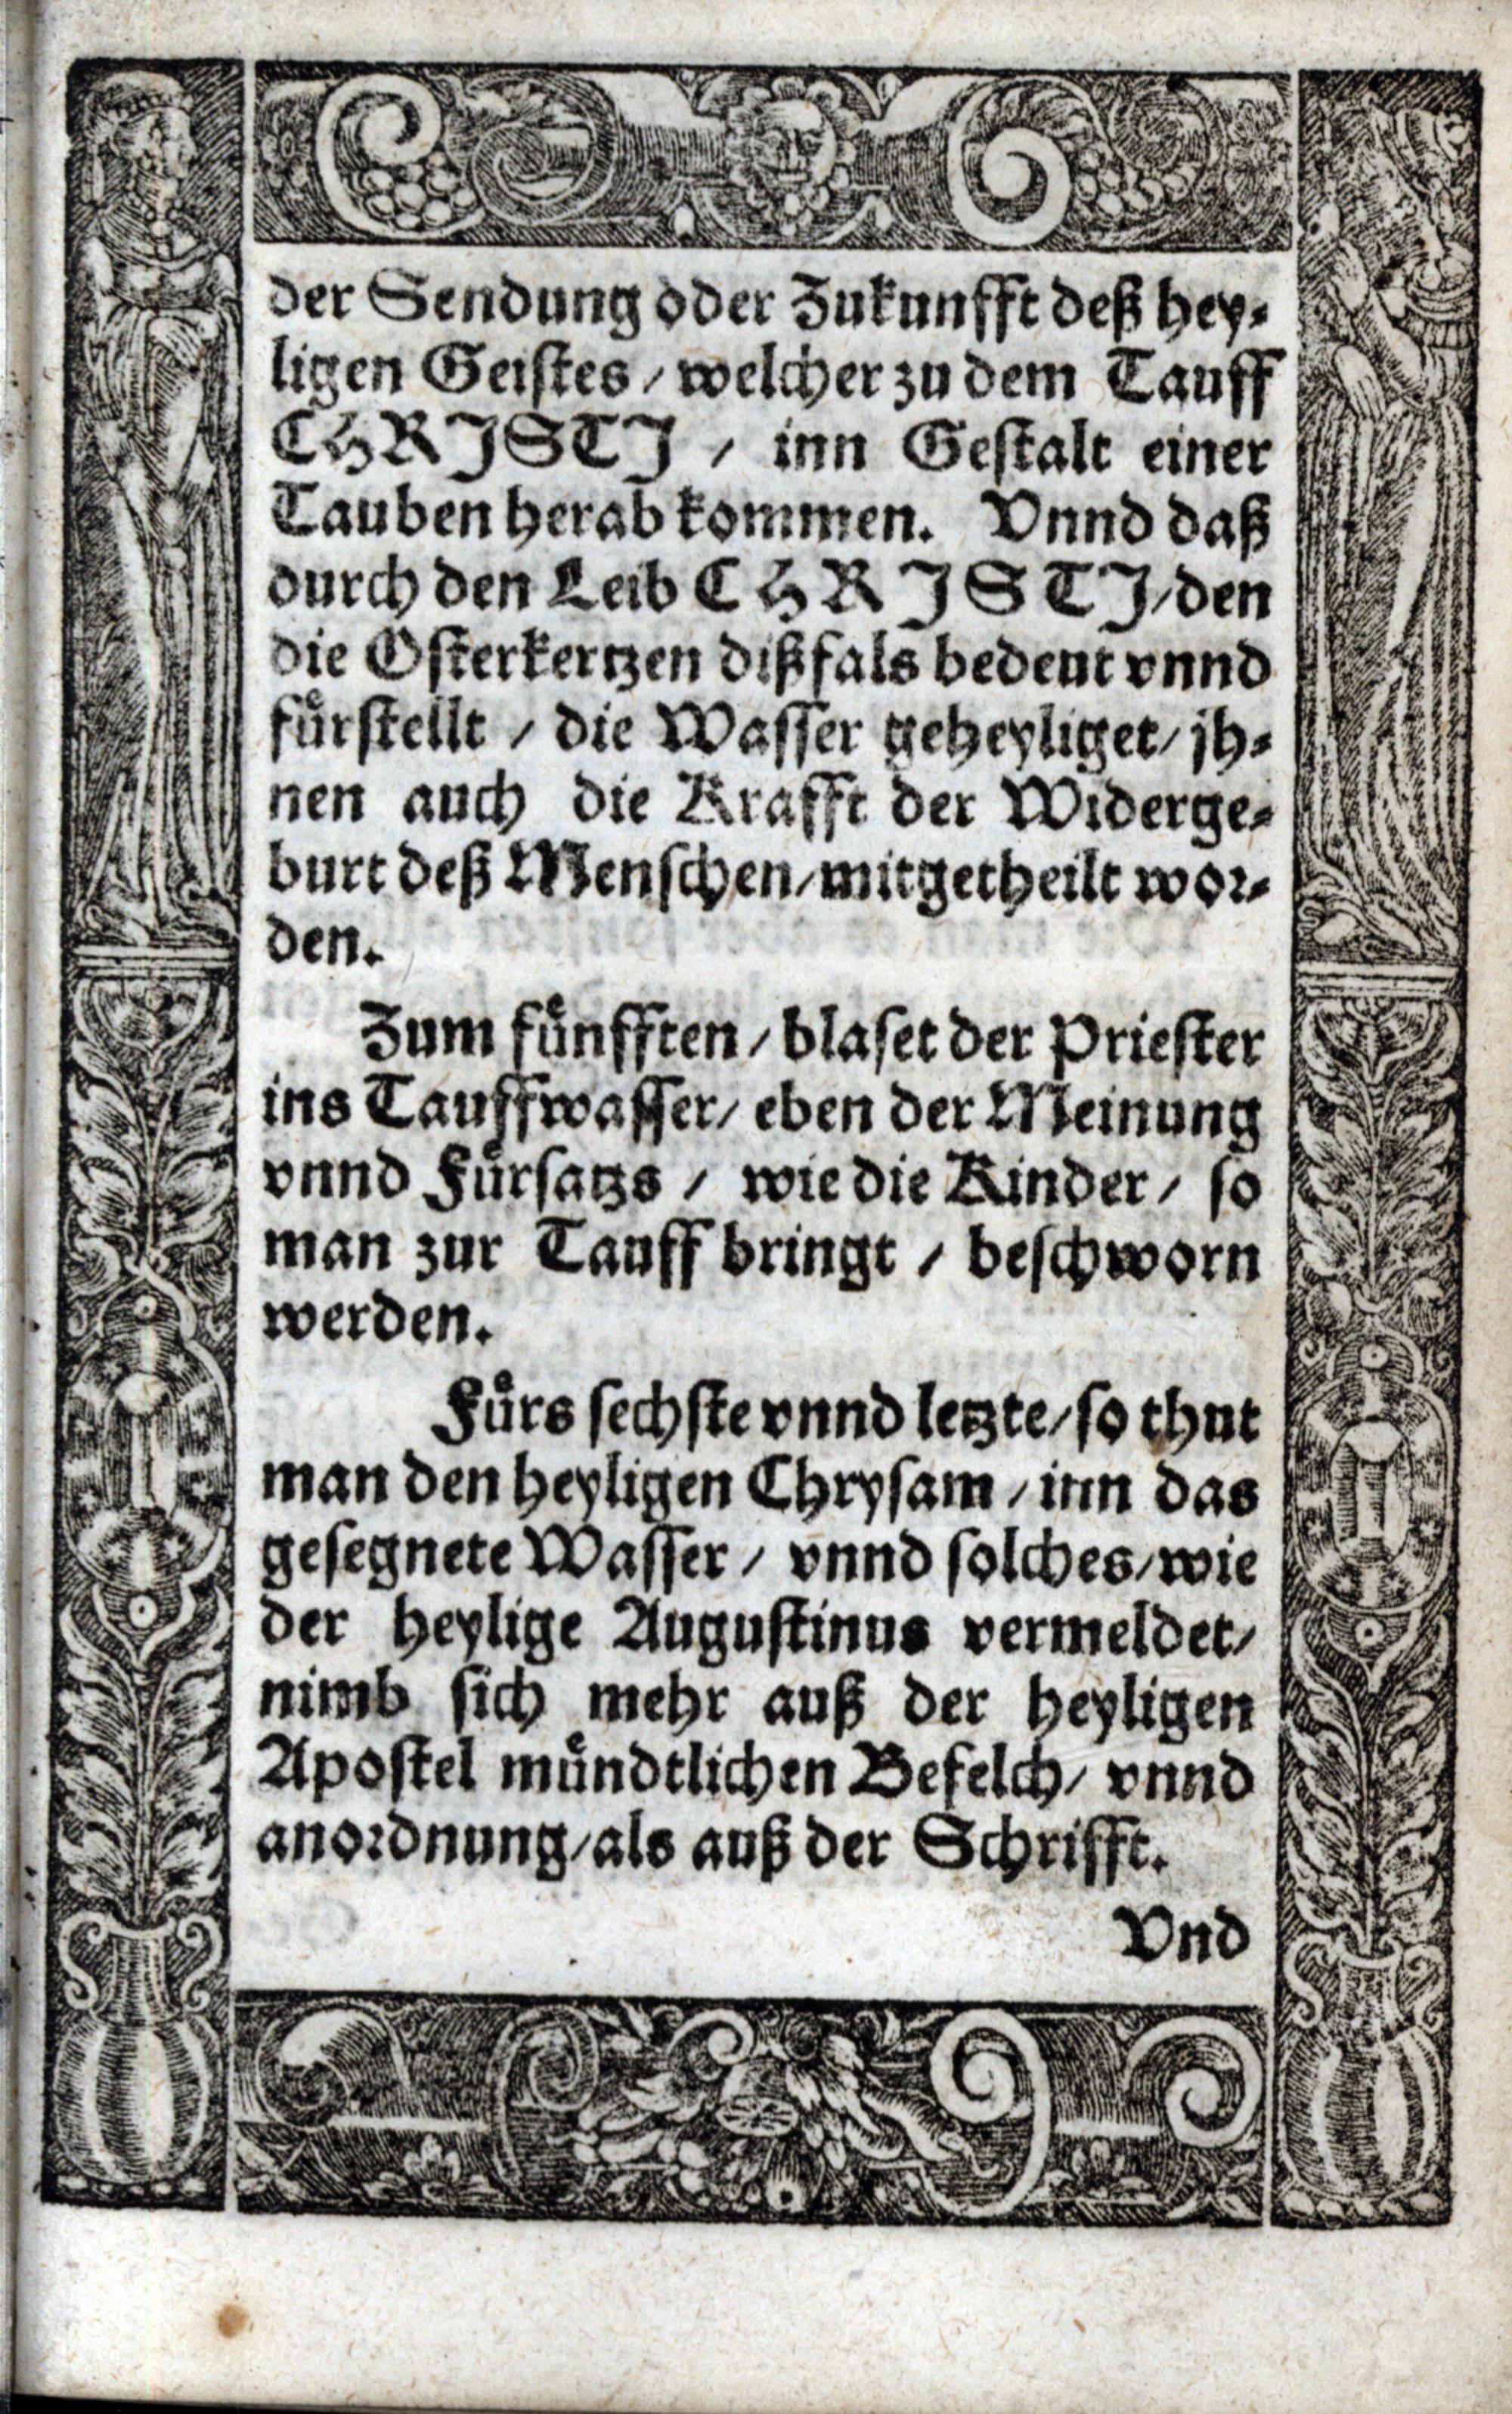 der Sendung oder Zukunfft deß hey⸗
ligen Geistes / welcher zu dem Tauff
CHRJSTJ / inn Gestalt einer
Tauben herab kommen. Vnnd daß
durch den Leib CHRJSTJ / den
die Osterkertzen dißfals bedeut vnnd
fuͤrstellt / die Wasser geheyliget / jh⸗
nen auch die Krafft der Widerge⸗
burt deß Menschen / mitgetheilt wor⸗
den.
Zum fuͤnfften / blaset der Priester
ins Tauffwasser / eben der Meinung
vnnd Fuͤrsatzs / wie die Kinder / so
man zur Tauff bringt / beschworn
werden.
Fuͤrs sechste vnnd letzte / so thut
man den heyligen Chrysam / inn das
gesegnete Wasser / vnnd solches / wie
der heylige Augustinus vermeldet /
nimb sich mehr auß der heyligen
Apostel muͤndtlichen Befelch / vnnd
anordnung / als auß der Schrifft.
Vnd